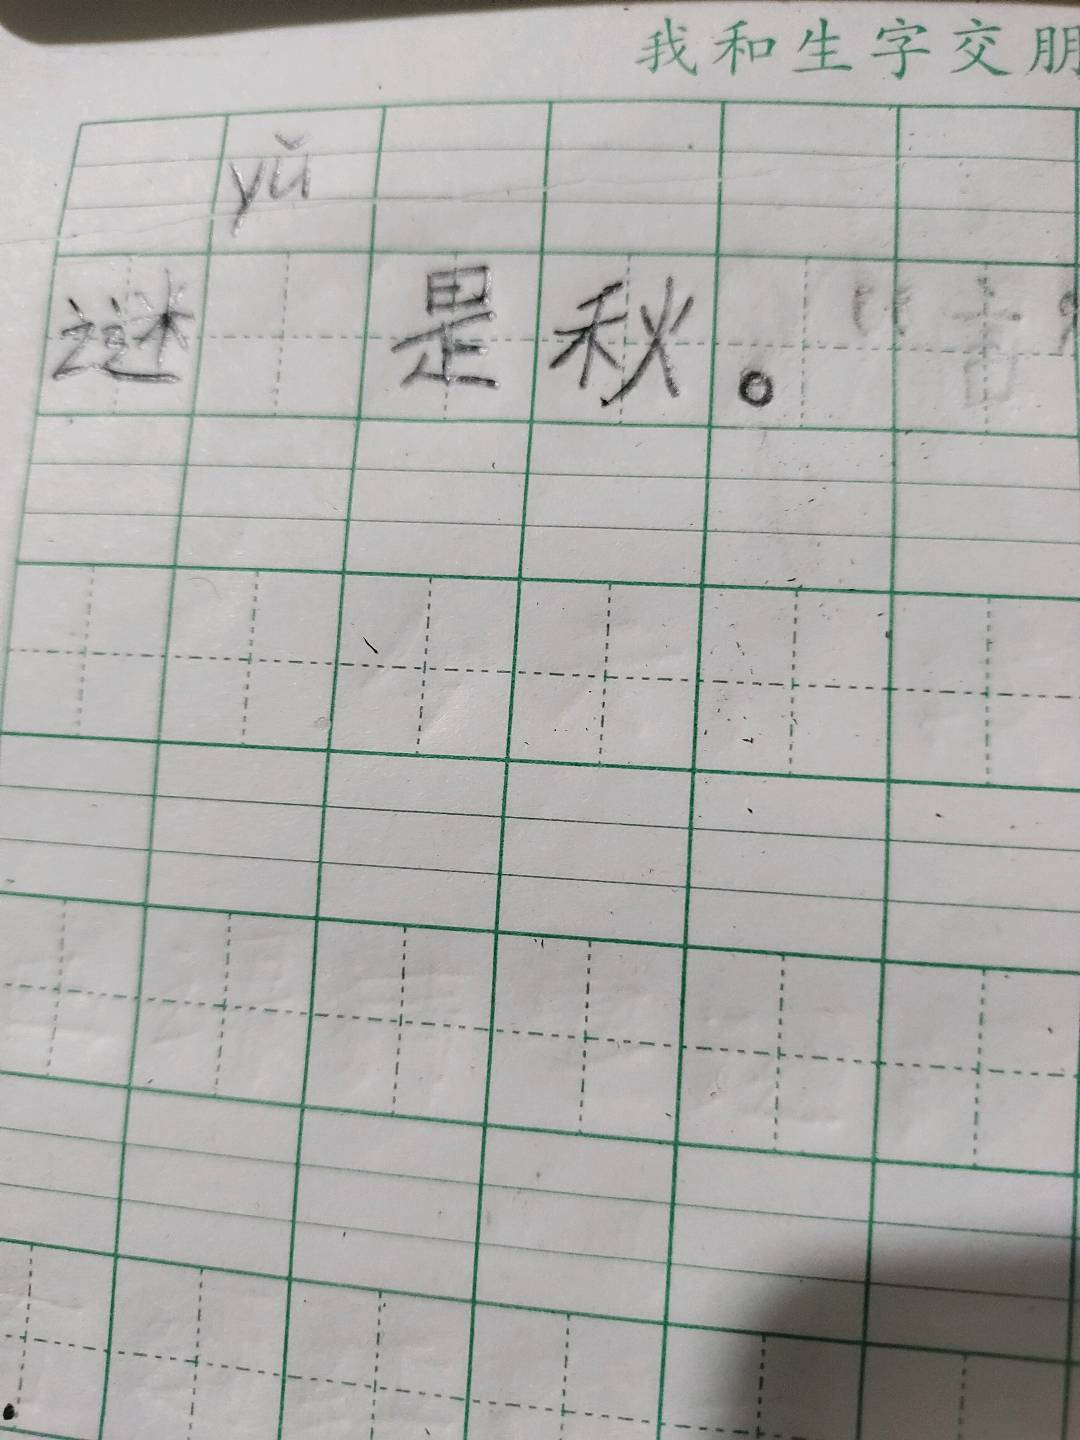 我和生字交朋
yǔ
谜 是秋。“吉